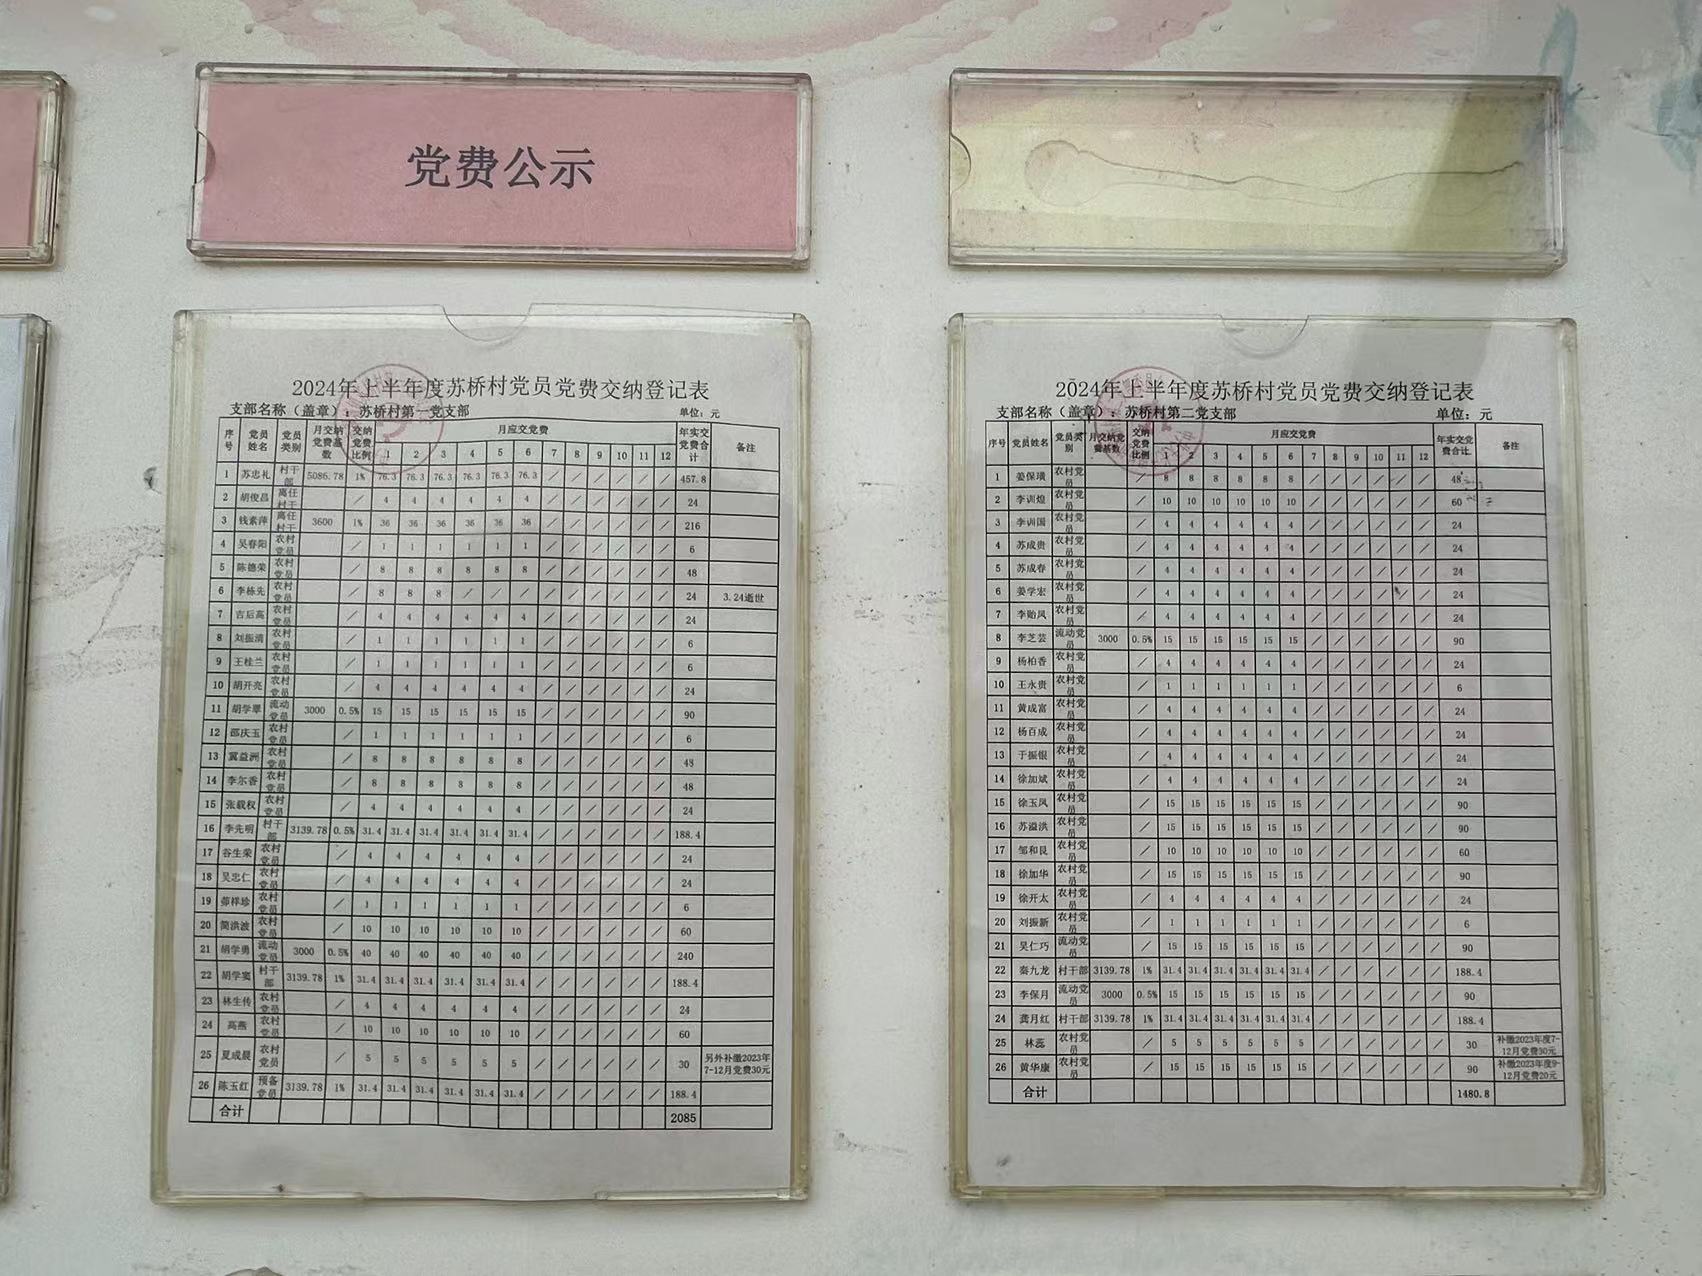 党费公示
2024年上半年度苏桥村党员党费交纳登记表
支部名称（盖章）：苏桥村第一党支部 单位：元
序号 党员姓名 党员类别 月交纳党费基数 交纳党费比例 月应交党费 年实交党费合计 备注
1 2 3 4 5 6 7 8 9 10 11 12
1 苏忠礼 村干部 5086.78 1% 76.3 76.3 76.3 76.3 76.3 76.3 / / / / / / 457.8
2 胡俊昌 离任村干 / 4 4 4 4 4 4 / / / / / / 24
3 钱素萍 离任村干 3600 1% 36 36 36 36 36 36 / / / / / / 216
4 吴春阳 农村党员 / 1 1 1 1 1 1 / / / / / / 6
5 陈德荣 农村党员 / 8 8 8 8 8 8 / / / / / / 48
6 李栋先 农村党员 / 8 8 8 / / / / / / / / / 24 3.24逝世
7 吉后高 农村党员 / 4 4 4 4 4 4 / / / / / / 24
8 刘振清 农村党员 / 1 1 1 1 1 1 / / / / / / 6
9 王桂兰 农村党员 / 1 1 1 1 1 1 / / / / / / 6
10 胡开亮 农村党员 / 4 4 4 4 4 4 / / / / / / 24
11 胡学 流动党员 3000 0.5% 15 15 15 15 15 15 / / / / / / 90
12 邵庆玉 农村党员 / 1 1 1 1 1 1 / / / / / / 6
13 冀益洲 农村党员 / 8 8 8 8 8 8 / / / / / / 48
14 李尔香 农村党员 / 8 8 8 8 8 8 / / / / / / 48
15 张载权 农村党员 / 4 4 4 4 4 4 / / / / / / 24
16 李先明 村干部 3139.78 0.5% 31.4 31.4 31.4 31.4 31.4 31.4 / / / / / / 188.4
17 谷生荣 农村党员 / 4 4 4 4 4 4 / / / / / / 24
18 吴忠仁 农村党员 / 4 4 4 4 4 4 / / / / / / 24
19 茆样珍 农村党员 / 1 1 1 1 1 1 / / / / / / 6
20 简洪波 农村党员 / 10 10 10 10 10 10 / / / / / / 60
21 胡学勇 流动党员 3000 0.5% 40 40 40 40 40 40 / / / / / / 240
22 胡学奕 村干部 3139.78 1% 31.4 31.4 31.4 31.4 31.4 31.4 / / / / / / 188.4
23 林生传 农村党员 / 4 4 4 4 4 4 / / / / / / 24
24 高燕 农村党员 / 10 10 10 10 10 10 / / / / / / 60
25 夏成晨 农村党员 / 5 5 5 5 5 5 / / / / / / 30 另外补缴2023年7-12月党费30元
26 陈玉红 预备党员 3139.78 1% 31.4 31.4 31.4 31.4 31.4 31.4 / / / / / / 188.4
合计 2085
2024年上半年度苏桥村党员党费交纳登记表
支部名称（盖章）：苏桥村第二党支部 单位：元
序号 党员姓名 党员类别 月交纳党费基数 交纳党费比例 月应交党费 年实交党费合计 备注
1 2 3 4 5 6 7 8 9 10 11 12
1 姜保璜 农村党员 / 8 8 8 8 8 8 / / / / / / 48
2 李训煌 农村党员 / 10 10 10 10 10 10 / / / / / / 60
3 李训国 农村党员 / 4 4 4 4 4 4 / / / / / / 24
4 苏成贵 农村党员 / 4 4 4 4 4 4 / / / / / / 24
5 苏成春 农村党员 / 4 4 4 4 4 4 / / / / / / 24
6 姜学宏 农村党员 / 4 4 4 4 4 4 / / / / / / 24
7 李贻凤 农村党员 / 4 4 4 4 4 4 / / / / / / 24
8 李芝芸 流动党员 3000 0.5% 15 15 15 15 15 15 / / / / / / 90
9 杨柏香 农村党员 / 4 4 4 4 4 4 / / / / / / 24
10 王永贵 农村党员 / 1 1 1 1 1 1 / / / / / / 6
11 黄成富 农村党员 / 4 4 4 4 4 4 / / / / / / 24
12 杨百成 农村党员 / 4 4 4 4 4 4 / / / / / / 24
13 于振银 农村党员 / 4 4 4 4 4 4 / / / / / / 24
14 徐加斌 农村党员 / 4 4 4 4 4 4 / / / / / / 24
15 徐玉凤 农村党员 / 15 15 15 15 15 15 / / / / / / 90
16 苏溢洪 农村党员 / 15 15 15 15 15 15 / / / / / / 90
17 邹和艮 农村党员 / 10 10 10 10 10 10 / / / / / / 60
18 徐加华 农村党员 / 15 15 15 15 15 15 / / / / / / 90
19 徐开太 农村党员 / 4 4 4 4 4 4 / / / / / / 24
20 刘振新 农村党员 / 1 1 1 1 1 1 / / / / / / 6
21 吴仁巧 流动党员 / 15 15 15 15 15 15 / / / / / / 90
22 秦九龙 村干部 3139.78 1% 31.4 31.4 31.4 31.4 31.4 31.4 / / / / / / 188.4
23 李保月 流动党员 3000 0.5% 15 15 15 15 15 15 / / / / / / 90
24 龚月红 村干部 3139.78 1% 31.4 31.4 31.4 31.4 31.4 31.4 / / / / / / 188.4
25 林蕊 农村党员 / 5 5 5 5 5 5 / / / / / / 30 补缴2023年度7-12月党费30元
26 黄华康 农村党员 / 15 15 15 15 15 15 / / / / / / 90 补缴2023年度9-12月党费20元
合计 1480.8